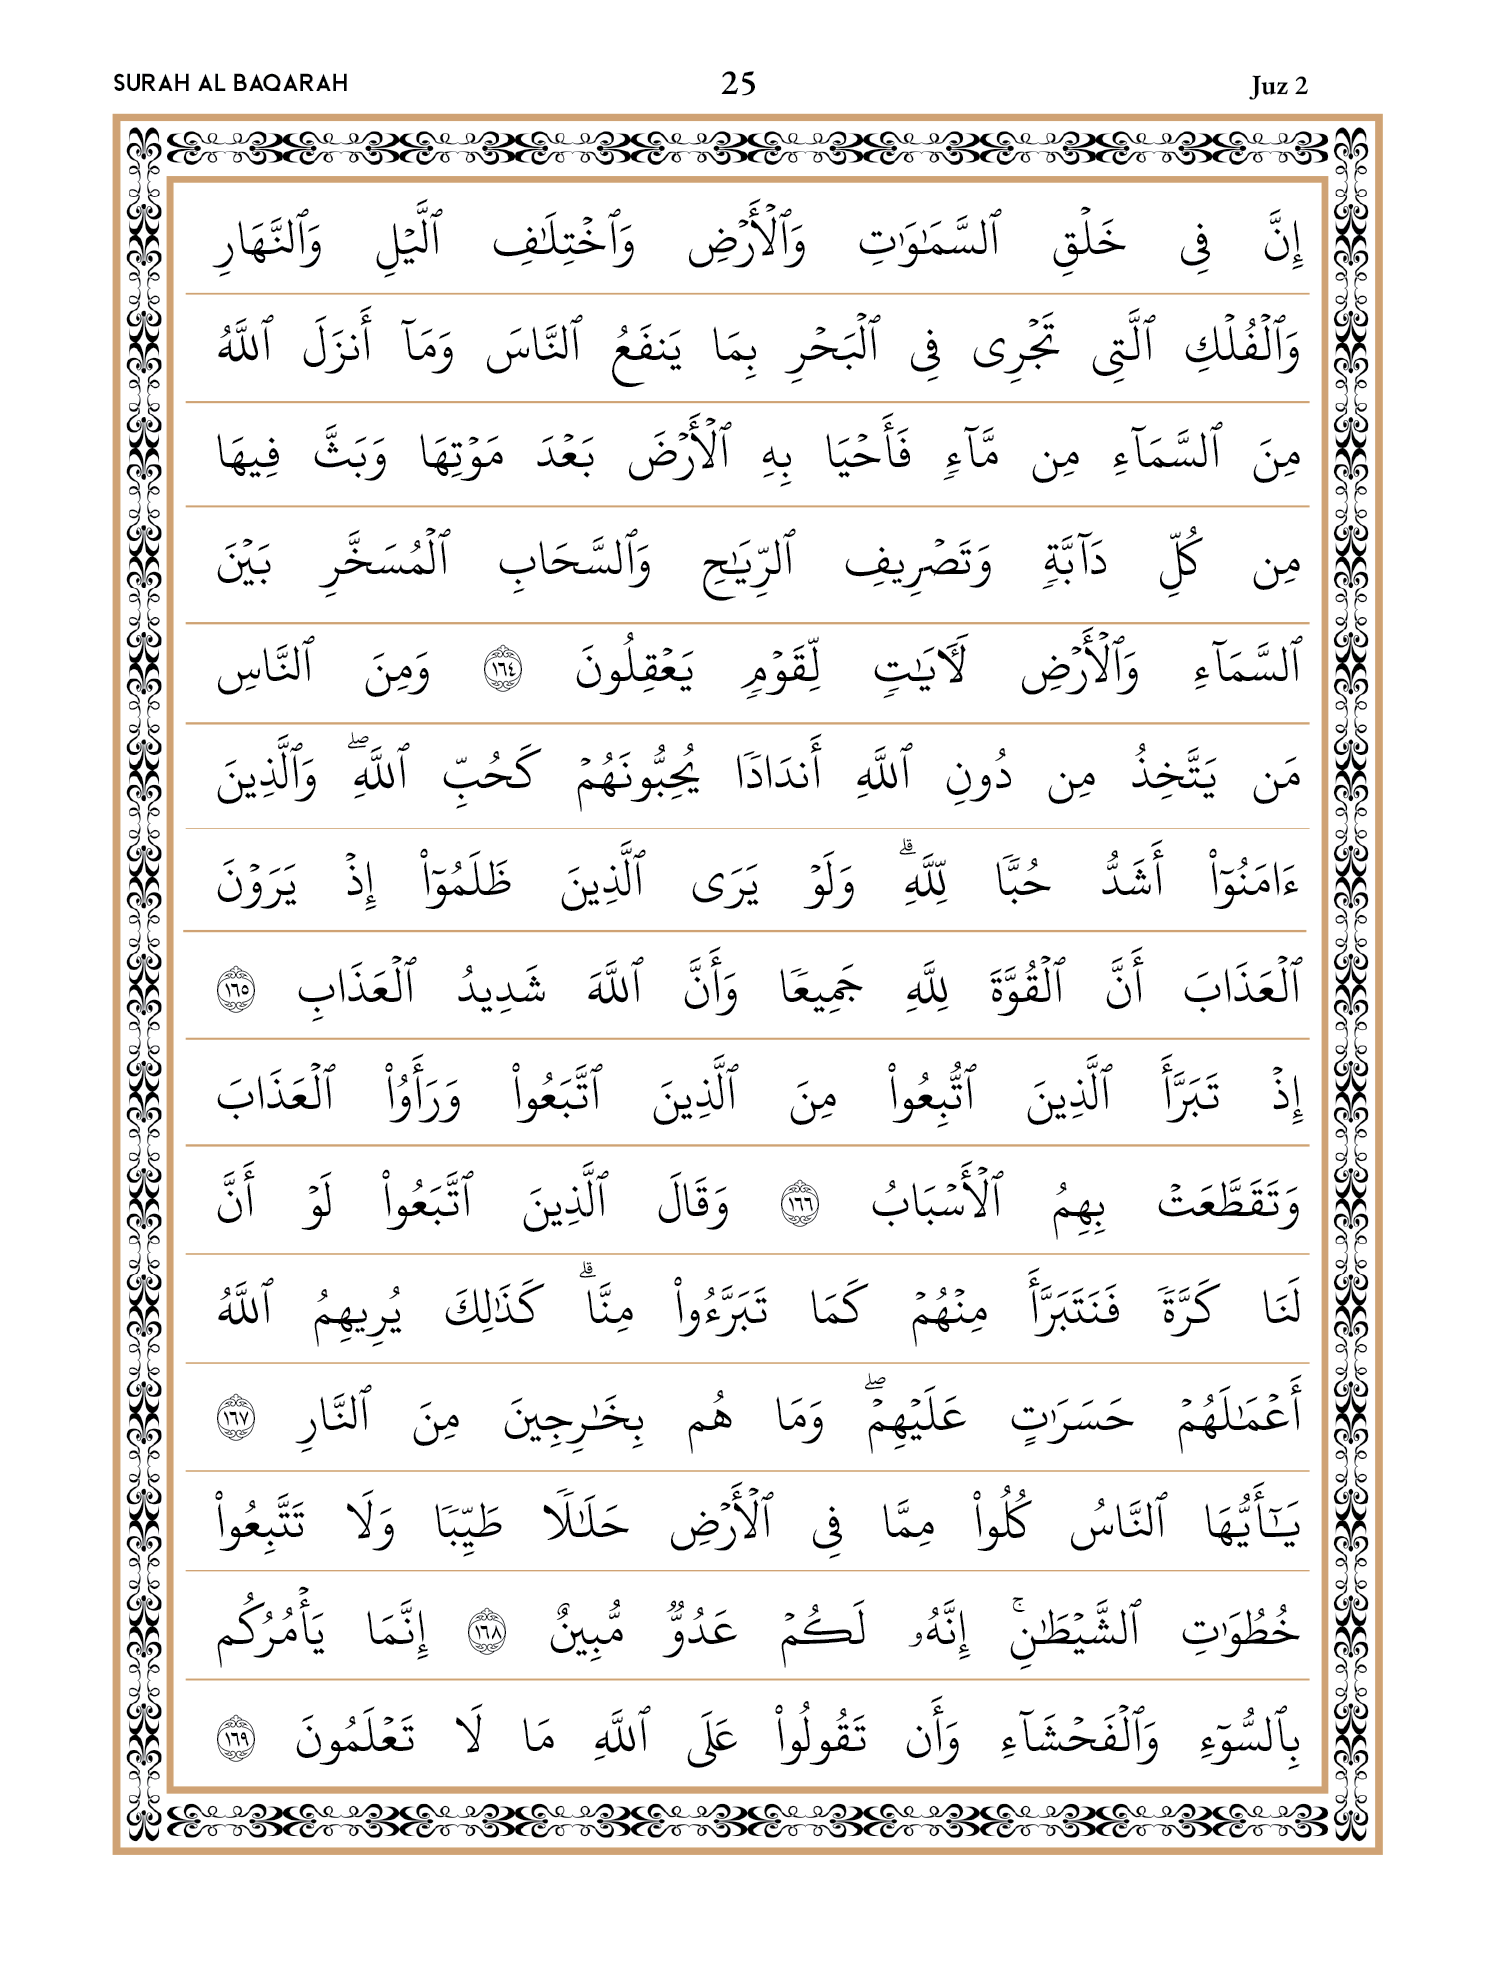 SURAH AL BAQARAH 25 Juz 2
إِنَّ فِى خَلْقِ ٱلسَّمَـٰوَٰتِ وَٱلْأَرْضِ وَٱخْتِلَـٰفِ ٱلَّيْلِ وَٱلنَّهَارِ
وَٱلْفُلْكِ ٱلَّتِى تَجْرِى فِى ٱلْبَحْرِ بِمَا يَنفَعُ ٱلنَّاسَ وَمَآ أَنزَلَ ٱللَّهُ
مِنَ ٱلسَّمَآءِ مِن مَّآءٍ فَأَحْيَا بِهِ ٱلْأَرْضَ بَعْدَ مَوْتِهَا وَبَثَّ فِيهَا
مِن كُلِّ دَآبَّةٍ وَتَصْرِيفِ ٱلرِّيَـٰحِ وَٱلسَّحَابِ ٱلْمُسَخَّرِ بَيْنَ
ٱلسَّمَآءِ وَٱلْأَرْضِ لَـَٔايَـٰتٍ لِّقَوْمٍ يَعْقِلُونَ ١٦٤ وَمِنَ ٱلنَّاسِ
مَن يَتَّخِذُ مِن دُونِ ٱللَّهِ أَندَادًا يُحِبُّونَهُمْ كَحُبِّ ٱللَّهِ ۖ وَٱلَّذِينَ
ءَامَنُوٓا۟ أَشَدُّ حُبًّا لِّلَّهِ ۗ وَلَوْ يَرَى ٱلَّذِينَ ظَلَمُوٓا۟ إِذْ يَرَوْنَ
ٱلْعَذَابَ أَنَّ ٱلْقُوَّةَ لِلَّهِ جَمِيعًا وَأَنَّ ٱللَّهَ شَدِيدُ ٱلْعَذَابِ ١٦٥
إِذْ تَبَرَّأَ ٱلَّذِينَ ٱتُّبِعُوا۟ مِنَ ٱلَّذِينَ ٱتَّبَعُوا۟ وَرَأَوُا۟ ٱلْعَذَابَ
وَتَقَطَّعَتْ بِهِمُ ٱلْأَسْبَابُ ١٦٦ وَقَالَ ٱلَّذِينَ ٱتَّبَعُوا۟ لَوْ أَنَّ
لَنَا كَرَّةً فَنَتَبَرَّأَ مِنْهُمْ كَمَا تَبَرَّءُوا۟ مِنَّا ۗ كَذَٰلِكَ يُرِيهِمُ ٱللَّهُ
أَعْمَـٰلَهُمْ حَسَرَٰتٍ عَلَيْهِمْ ۖ وَمَا هُم بِخَـٰرِجِينَ مِنَ ٱلنَّارِ ١٦٧
يَـٰٓأَيُّهَا ٱلنَّاسُ كُلُوا۟ مِمَّا فِى ٱلْأَرْضِ حَلَـٰلًا طَيِّبًا وَلَا تَتَّبِعُوا۟
خُطُوَٰتِ ٱلشَّيْطَـٰنِ ۚ إِنَّهُۥ لَكُمْ عَدُوٌّ مُّبِينٌ ١٦٨ إِنَّمَا يَأْمُرُكُم
بِٱلسُّوٓءِ وَٱلْفَحْشَآءِ وَأَن تَقُولُوا۟ عَلَى ٱللَّهِ مَا لَا تَعْلَمُونَ ١٦٩